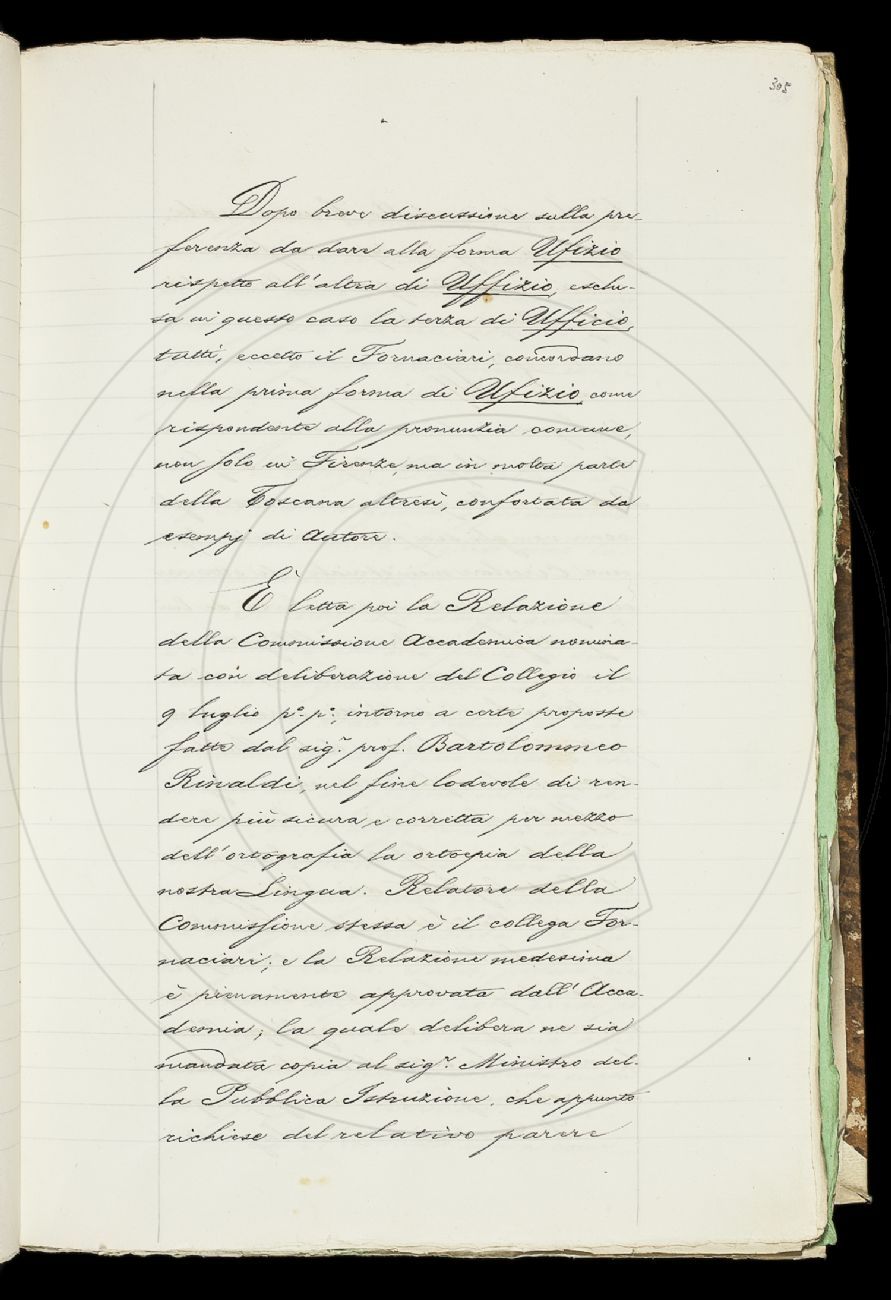 305
Dopo breve discussione sulla pre-
ferenza da dare alla forma Ufizio
rispetto all'altra di Uffizio, esclu-
sa in questo caso la terza di Ufficio,
tutti, eccetto il Fornaciari, concordano
nella prima forma di Ufizio come
rispondente alla pronunzia comune,
non solo in Firenze, ma in molta parte
della Toscana altresì, confortata da
esempj di Autore.
È letta poi la Relazione
della Commissione Accademica nomina-
ta con deliberazione del Collegio il
9 luglio p.º p.º, intorno a certe proposte
fatte dal sig.r prof. Bartolommeo
Rinaldi, nel fine lodevole di ren-
dere più sicura e corretta per mezzo
dell'ortografia la ortoepia della
nostra Lingua. Relatore della
Commissione stessa è il collega For-
naciari; e la Relazione medesima
è pienamente approvata dall'Acca-
demia; la quale delibera ne sia
mandata copia al sig.r Ministro del-
la Pubblica Istruzione, che appunto
richiese del relativo parere